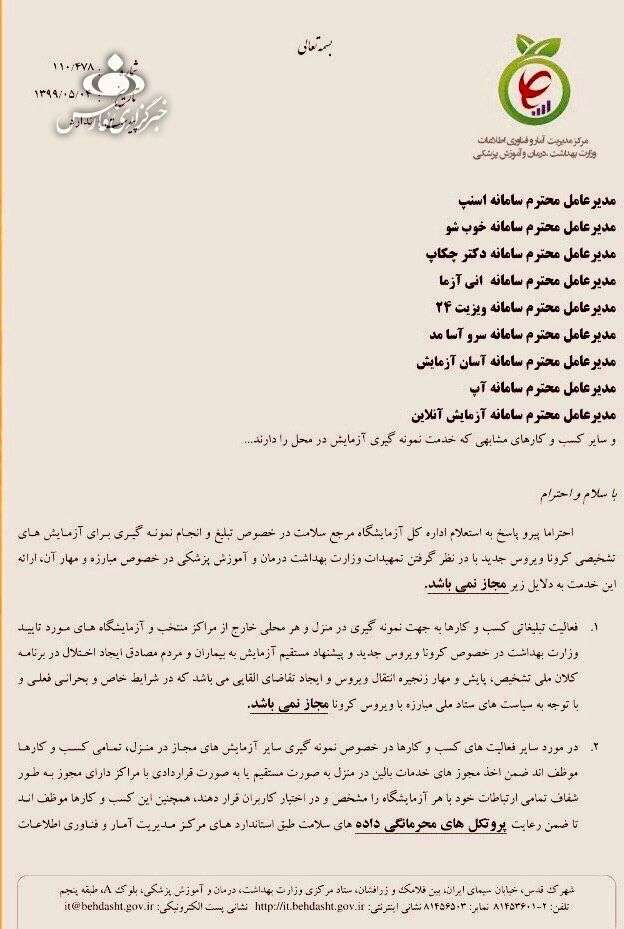 بسمه تعالی
۱۱۰/۴۷۸
۱۳۹۹/۰۵/۰۴
ندارد
خبرگزاری فارس
مرکز مدیریت آمار و فناوری اطلاعات
وزارت بهداشت، درمان و آموزش پزشکی
مدیرعامل محترم سامانه اسنپ
مدیرعامل محترم سامانه خوب شو
مدیرعامل محترم سامانه دکتر چکاپ
مدیرعامل محترم سامانه انی آزما
مدیرعامل محترم سامانه ویزیت ۲۴
مدیرعامل محترم سامانه سرو آسا مد
مدیرعامل محترم سامانه آسان آزمایش
مدیرعامل محترم سامانه آپ
مدیرعامل محترم سامانه آزمایش آنلاین
و سایر کسب و کارهای مشابهی که خدمت نمونه گیری آزمایش در محل را دارند...
با سلام و احترام
احتراما پیرو پاسخ به استعلام اداره کل آزمایشگاه مرجع سلامت در خصوص تبلیغ و انجام نمونه گیری برای آزمایش های
تشخیصی کرونا ویروس جدید با در نظر گرفتن تمهیدات وزارت بهداشت درمان و آموزش پزشکی در خصوص مبارزه و مهار آن، ارائه
این خدمت به دلایل زیر مجاز نمی باشد.
۱. فعالیت تبلیغاتی کسب و کارها به جهت نمونه گیری در منزل و هر محلی خارج از مراکز منتخب و آزمایشگاه های مورد تایید
وزارت بهداشت در خصوص کرونا ویروس جدید و پیشنهاد مستقیم آزمایش به بیماران و مردم مصادق ایجاد اختلال در برنامه
کلان ملی تشخیص، پایش و مهار زنجیره انتقال ویروس و ایجاد تقاضای القایی می باشد که در شرایط خاص و بحرانی فعلی و
با توجه به سیاست های ستاد ملی مبارزه با ویروس کرونا مجاز نمی باشد.
۲. در مورد سایر فعالیت های کسب و کارها در خصوص نمونه گیری سایر آزمایش های مجاز در منزل، تمامی کسب و کارها
موظف اند ضمن اخذ مجوز های خدمات بالین در منزل به صورت مستقیم یا به صورت قراردادی با مراکز دارای مجوز به طور
شفاف تمامی ارتباطات خود با هر آزمایشگاه را مشخص و در اختیار کاربران قرار دهند، همچنین این کسب و کارها موظف اند
تا ضمن رعایت پروتکل های محرمانگی داده های سلامت طبق استاندارد های مرکز مدیریت آمار و فناوری اطلاعات
شهرک قدس، خیابان سیمای ایران، بین فلامک و زرافشان، ستاد مرکزی وزارت بهداشت، درمان و آموزش پزشکی، بلوک A، طبقه پنجم
تلفن: ۲-۸۱۴۵۳۶۰۱ نمابر: ۸۱۴۵۶۵۰۳ نشانی اینترنتی: http://it.behdasht.gov.ir نشانی پست الکترونیکی: it@behdasht.gov.ir